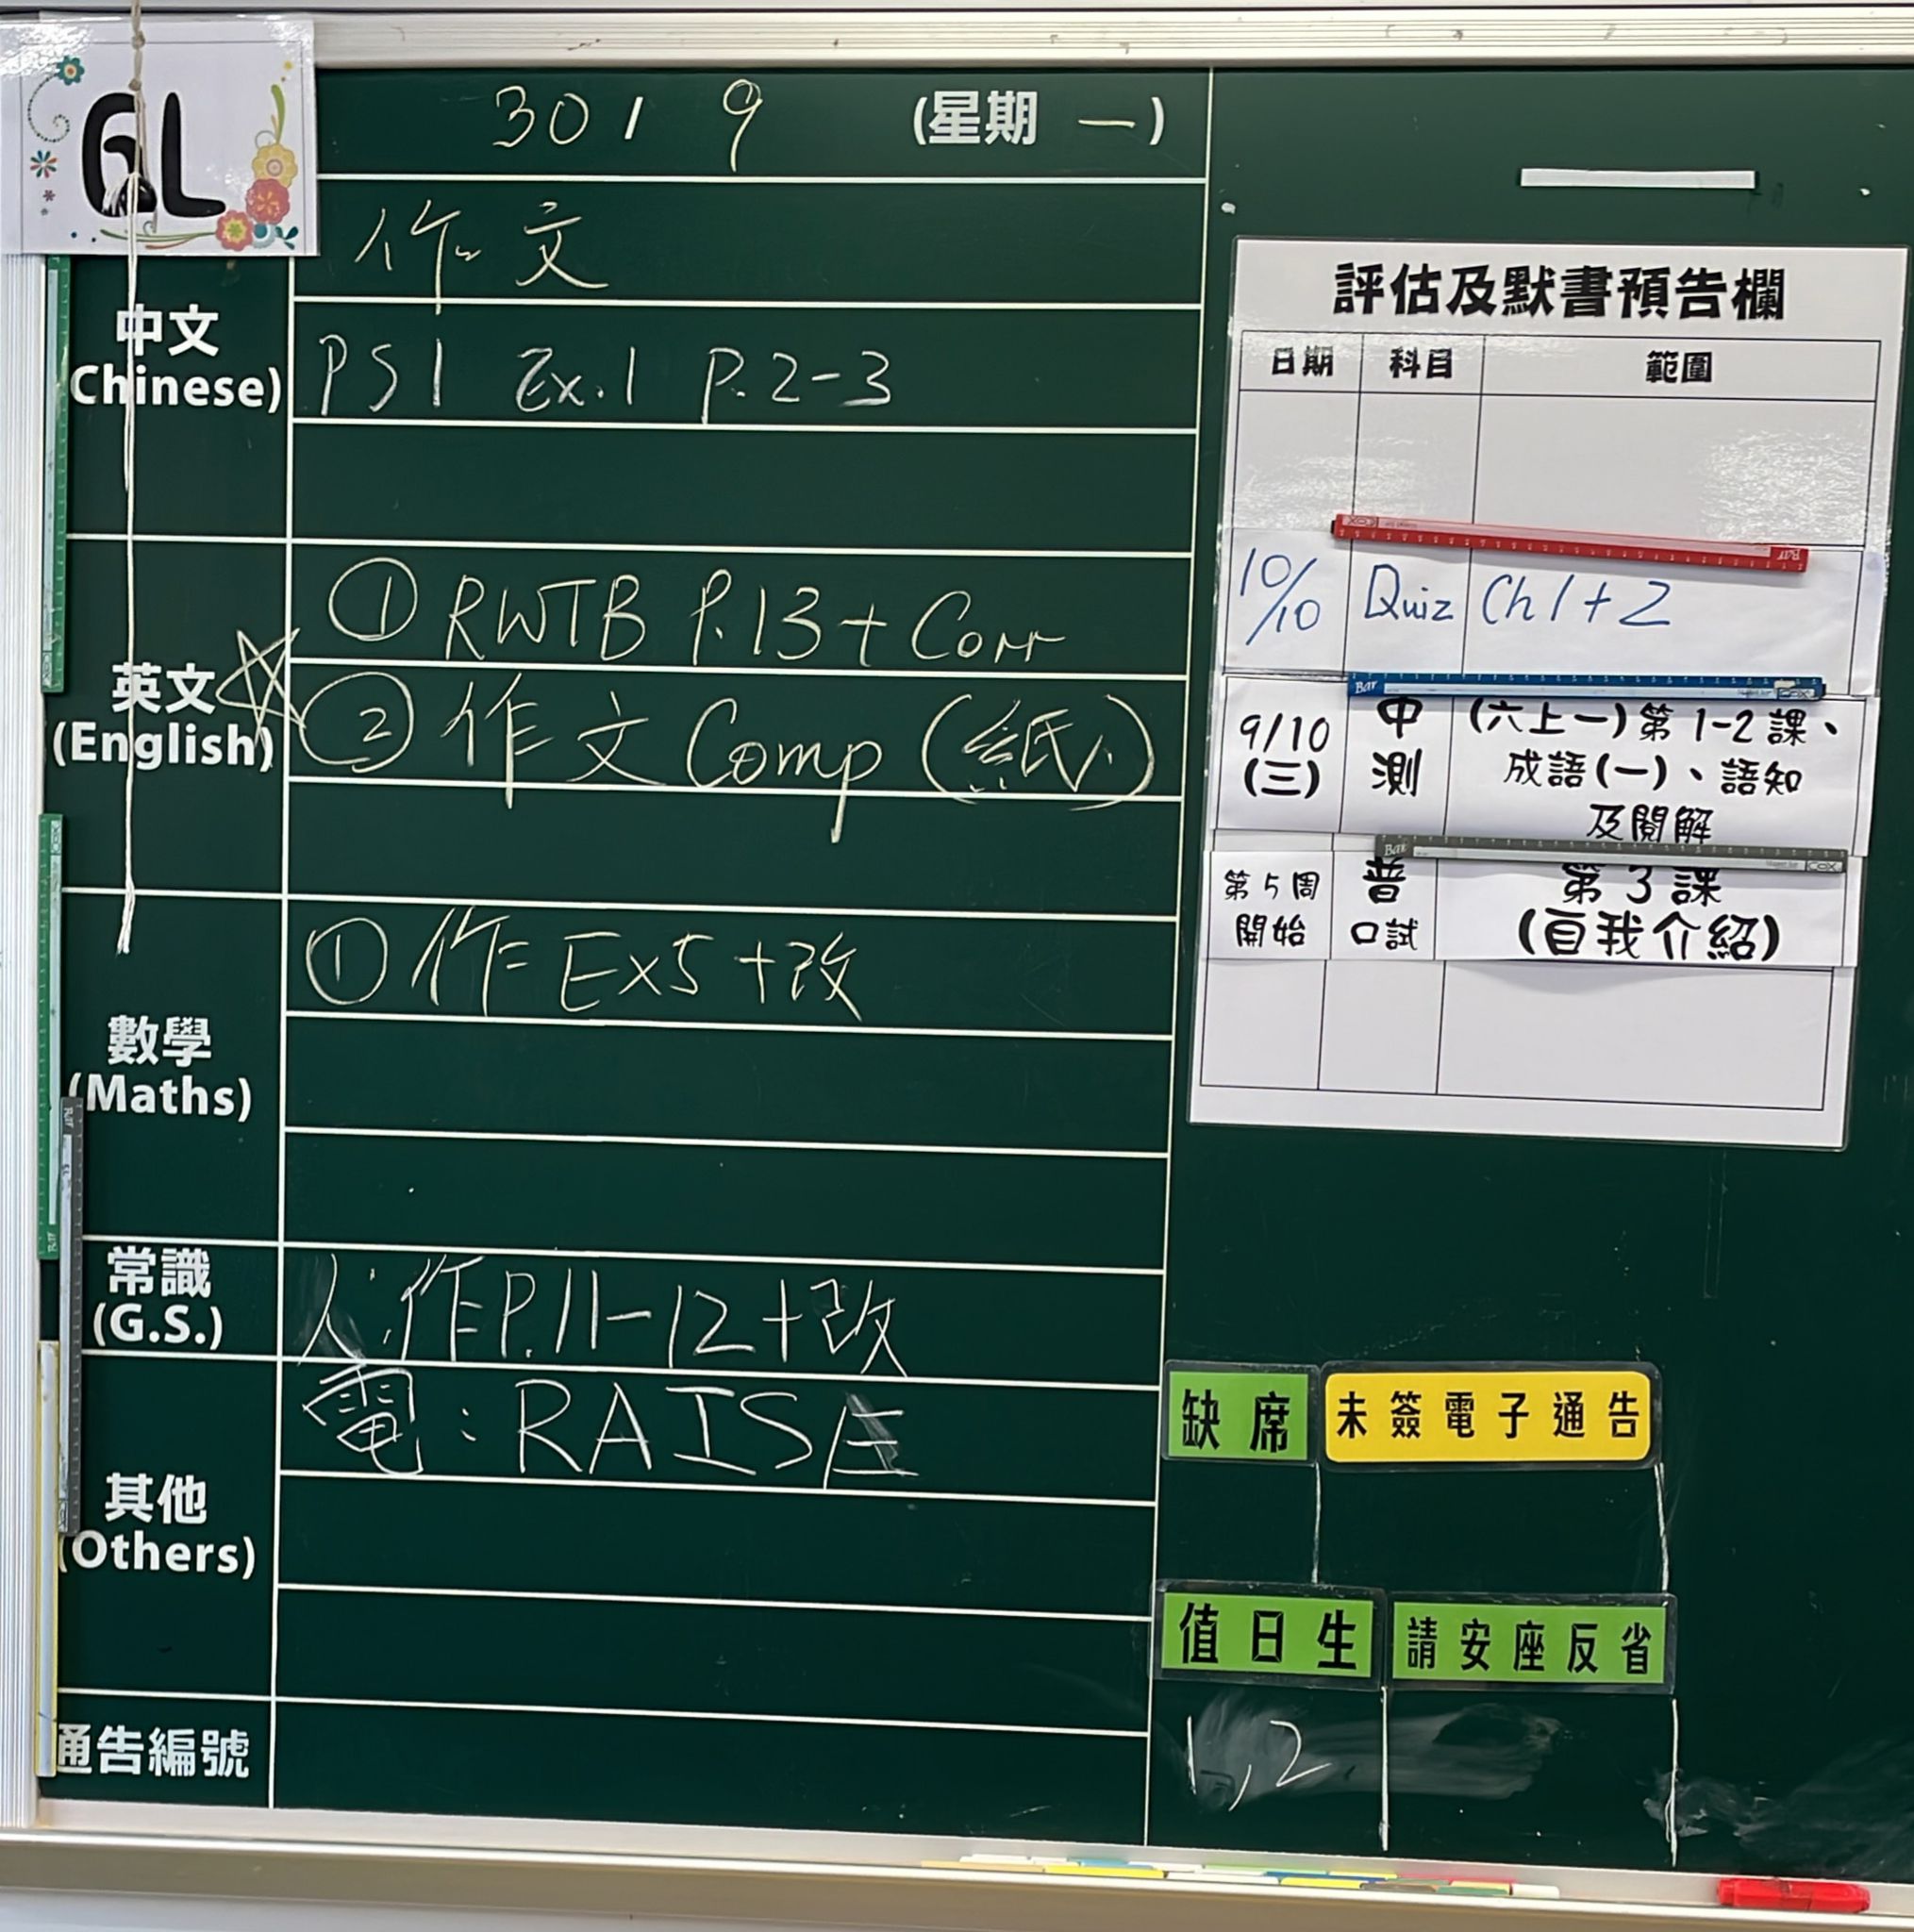 6L
30 / 9 (星期 一)
中文
(Chinese)
作文
PS1 Ex.1 P.2-3
英文
(English)
① RWTB P.13 + Corr
② 作文 Comp (紙)
數學
(Maths)
① 作 Ex5 + 改
常識
(G.S.)
人:作P.11-12+改
其他
(Others)
電: RAISE
通告編號
評估及默書預告欄
日期 科目 範圍
10/10 Quiz Ch 1 + 2
9/10 (三) 中測 (六上一)第 1-2 課、
成語(一)、語知
及閱解
第5周開始 普口試 第 3 課
(自我介紹)
缺席 未簽電子通告
值日生 請安座反省
1,2